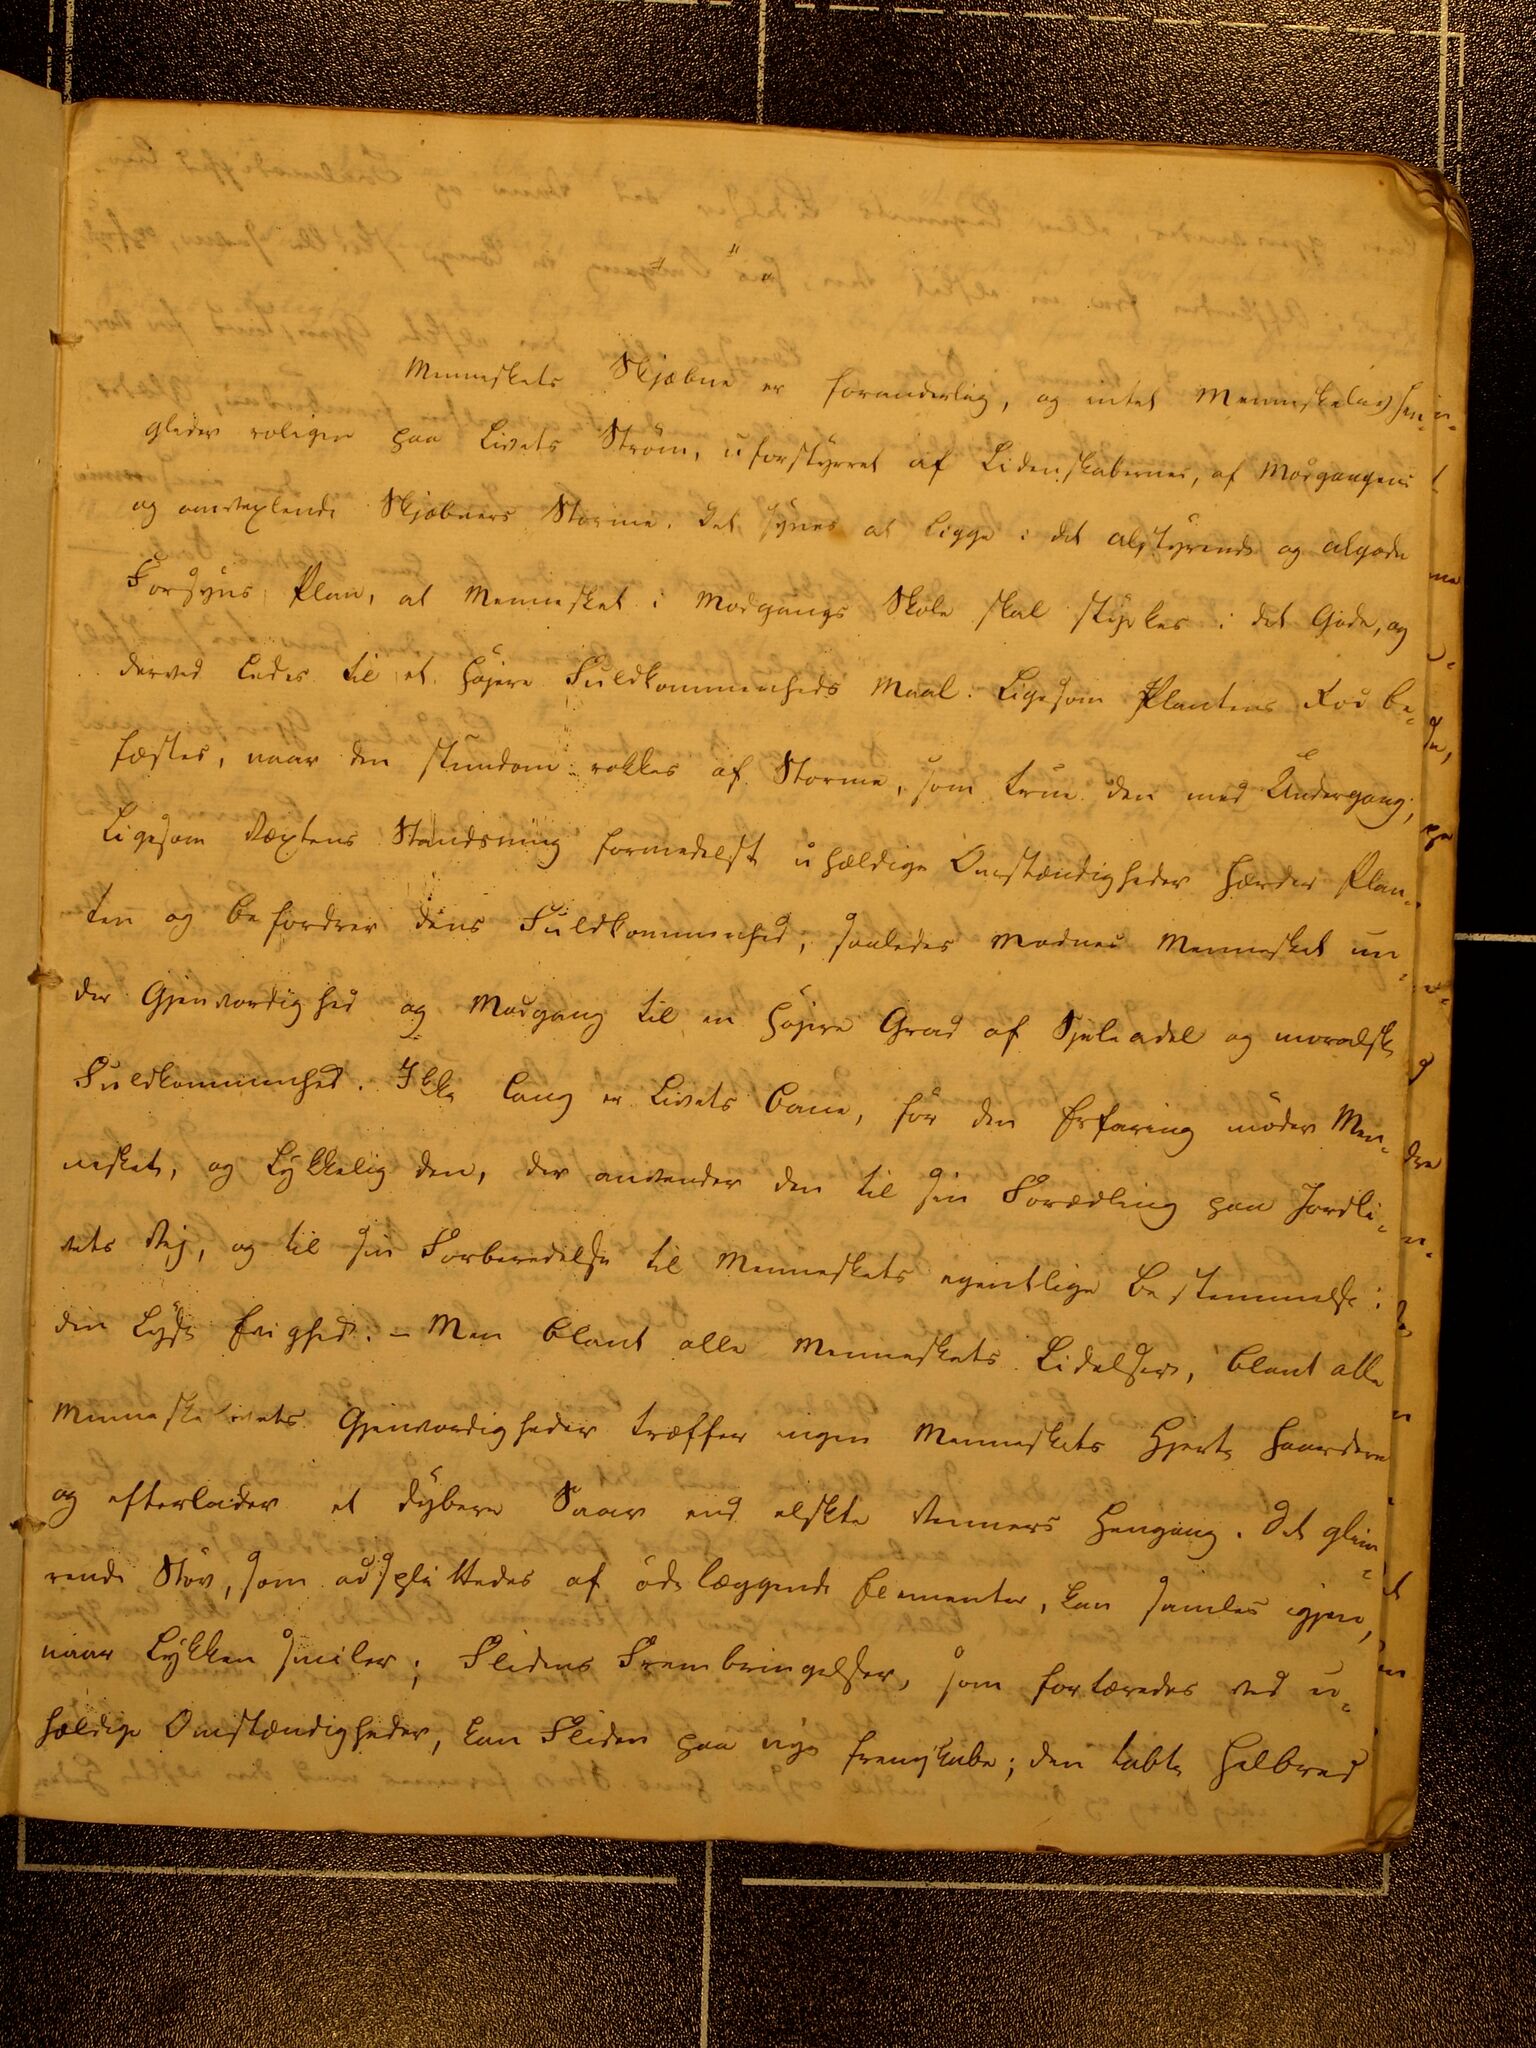 Menneskets Skjæbne er foranderlig, og intet Menneskelevnen
glider roligen paa Livets Strøm, uforstyrret af Lidenskabernes, af Modgangens
og omvexlende Skjæbners Storme. Det synes at ligge i det alstyrende og algode
Forsyns Plan, at Mennesket i Modgangs Skole skal styrkes i det Gode, og
derved ledes til et høiere Fuldkommenheds Maal. Ligesom Plantens Rod be-
fæstes, naar den stundom rokkes af Storme, som true den med Undergang;
Ligesom Væxtens Standsning formedelst uhældige Omstændigheder hærder Plan-
ten og befordrer dens Fuldkommenhed; saaledes modnes Mennesket un-
der Gjenvordighed og Modgang til en høiere Grad af Sjeleadel og moralsk
Fuldkommenhed. Ikke lang er Livets Bane, før den Erfaring møder Men-
nesket, og Lykkelig den, der anvender den til sin Forædling paa Jordli-
vets Vej, og til sin Forberedelse til Menneskets egentlige Bestemmelse:
den lyse Evighed. – Men blant alle Menneskets Lidelser, blant alle
Menneskelivets Gjenvordigheder træffer ingen Menneskets Hjerte haardere
og efterlader et dybere Saar end elskte Venners Hengang. Det glim-
rende Støv, som adsplittedes af ødelæggende Elementer, kan samles igjen,
naar Lykken smiler; Flidens Frembringelser, som fortæredes ved u-
hældige Omstændigheder, kan Fliden paa nye fremskabe; den tabte Helbred